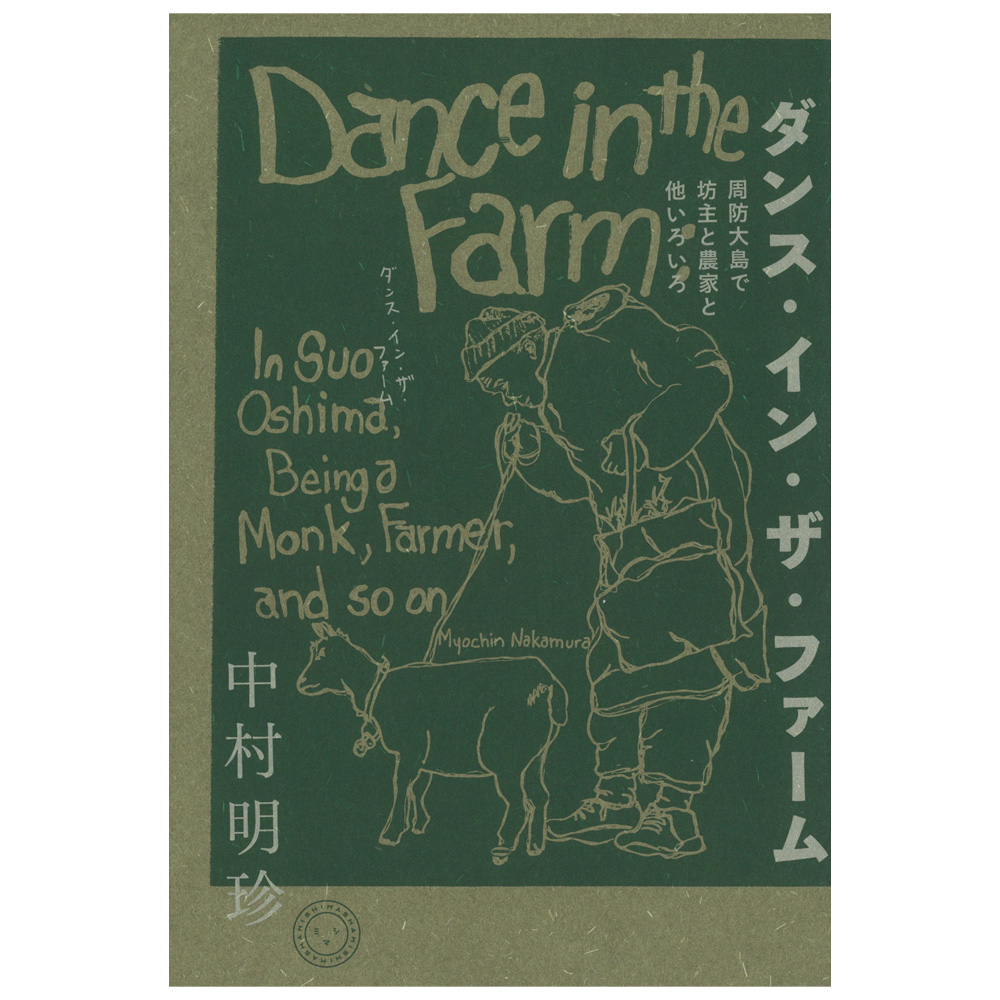 Dance in the
Farm:
ダンス・イン・ザ・ファーム
周防大島で
坊主と農家と
他いろいろ
ダンス・イン・ザ・
ファーム
In Suo
Oshima,
Being a
Monk, Farmer,
and so on
Myochin Nakamura
中村明珍
MISHIMASHAMISHIMASHA
ミシマ